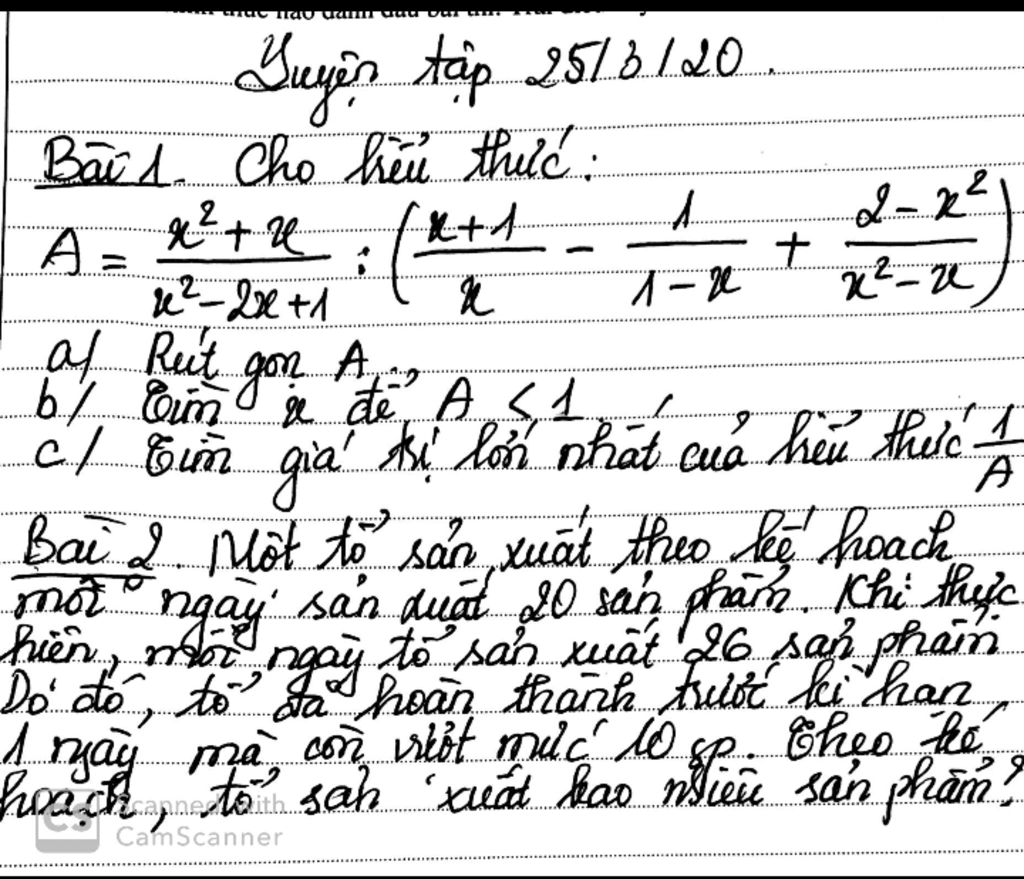 Luyện tập 25/3/20.
Bài 1. Cho biểu thức:
A = \frac{x^2+x}{x^2-2x+1} : \left(\frac{x+1}{x} - \frac{1}{1-x} + \frac{2-x^2}{x^2-x}\right)
a/ Rút gọn A.
b/ Tìm x để A < 1.
c/ Tìm giá trị lớn nhất của biểu thức \frac{1}{A}
Bài 2. Một tổ sản xuất theo kế hoạch
mỗi ngày sản xuất 20 sản phẩm. Khi thực
hiện, mỗi ngày tổ sản xuất 26 sản phẩm
Do đó, tổ đã hoàn thành trước kì hạn
1 ngày mà còn vượt mức 10 sp. Theo kế
hoạch, tổ sản xuất bao nhiêu sản phẩm?
CS Scanned with
CamScanner